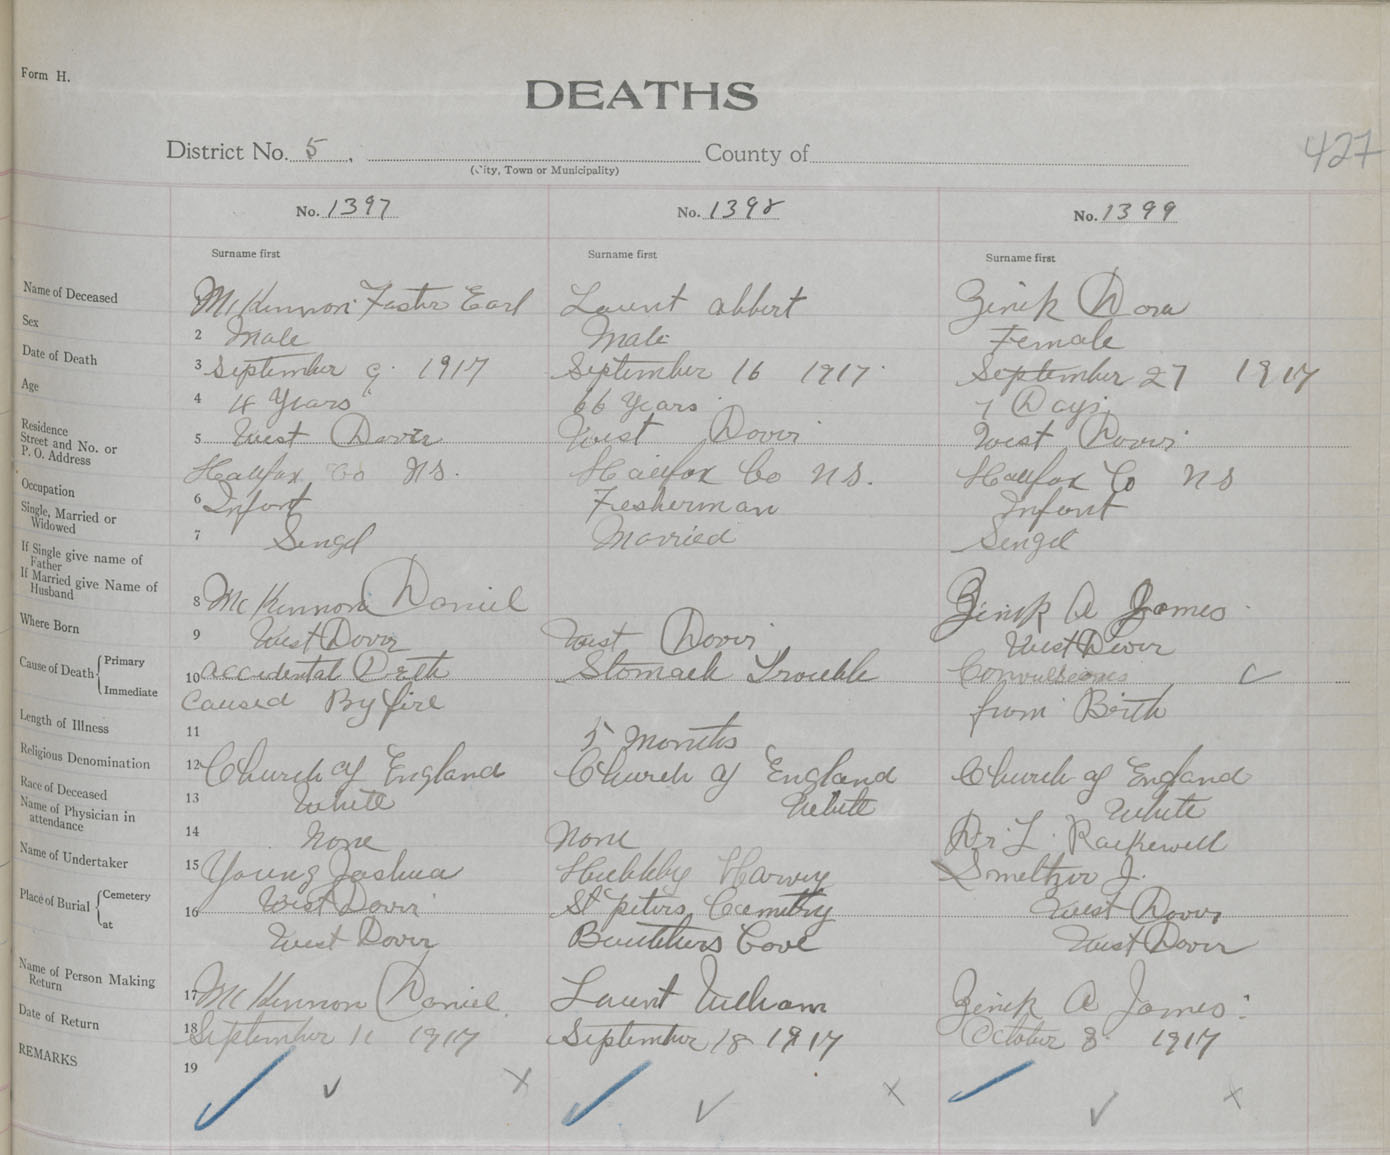 Form H.
DEATHS
427
District No. 5, County of
(City, Town or Municipality)
No. 1397 No. 1398 No. 1399
Surname first Surname first Surname first
Name of Deceased McKennon Foster Earl Launt Abbert Zinik Dora
Sex 2 Male Male Female
Date of Death 3 September 9. 1917 September 16 1917. September 27 1917
Age 4 4 Years 66 Years 7 Days
Residence Street and No. or P. O. Address 5 West Dover West Dover West Dover
Halifax Co N.S. Halifax Co N.S. Halifax Co N S
Occupation 6 Infant Fesherman Infont
Single, Married or Widowed 7 Sengel Married Sengel
If Single give name of Father
If Married give Name of Husband 8 McKennon Daniel Zinik A James
Where Born 9 West Dover West Dover West Dover
Cause of Death Primary 10 accidental Deth Stomack Trouble Convulseones
Immediate Caused By fire from Birth
Length of Illness 11 5 Months
Religious Denomination 12 Church of England Church of England Church of England
Race of Deceased 13 White White White
Name of Physician in attendance 14 None None Dr. L.
Name of Undertaker 15 Young Joshua Hubbly Harvey Smeltzer J.
Place of Burial Cemetery 16 West Dover St Peters Cemetry West Dover
at West Dover Cove West Dover
Name of Person Making Return 17 McKennon Daniel. Launt William Zinik A James
Date of Return 18 September 11 1917 September 18 1917 October 8 1917
REMARKS 19